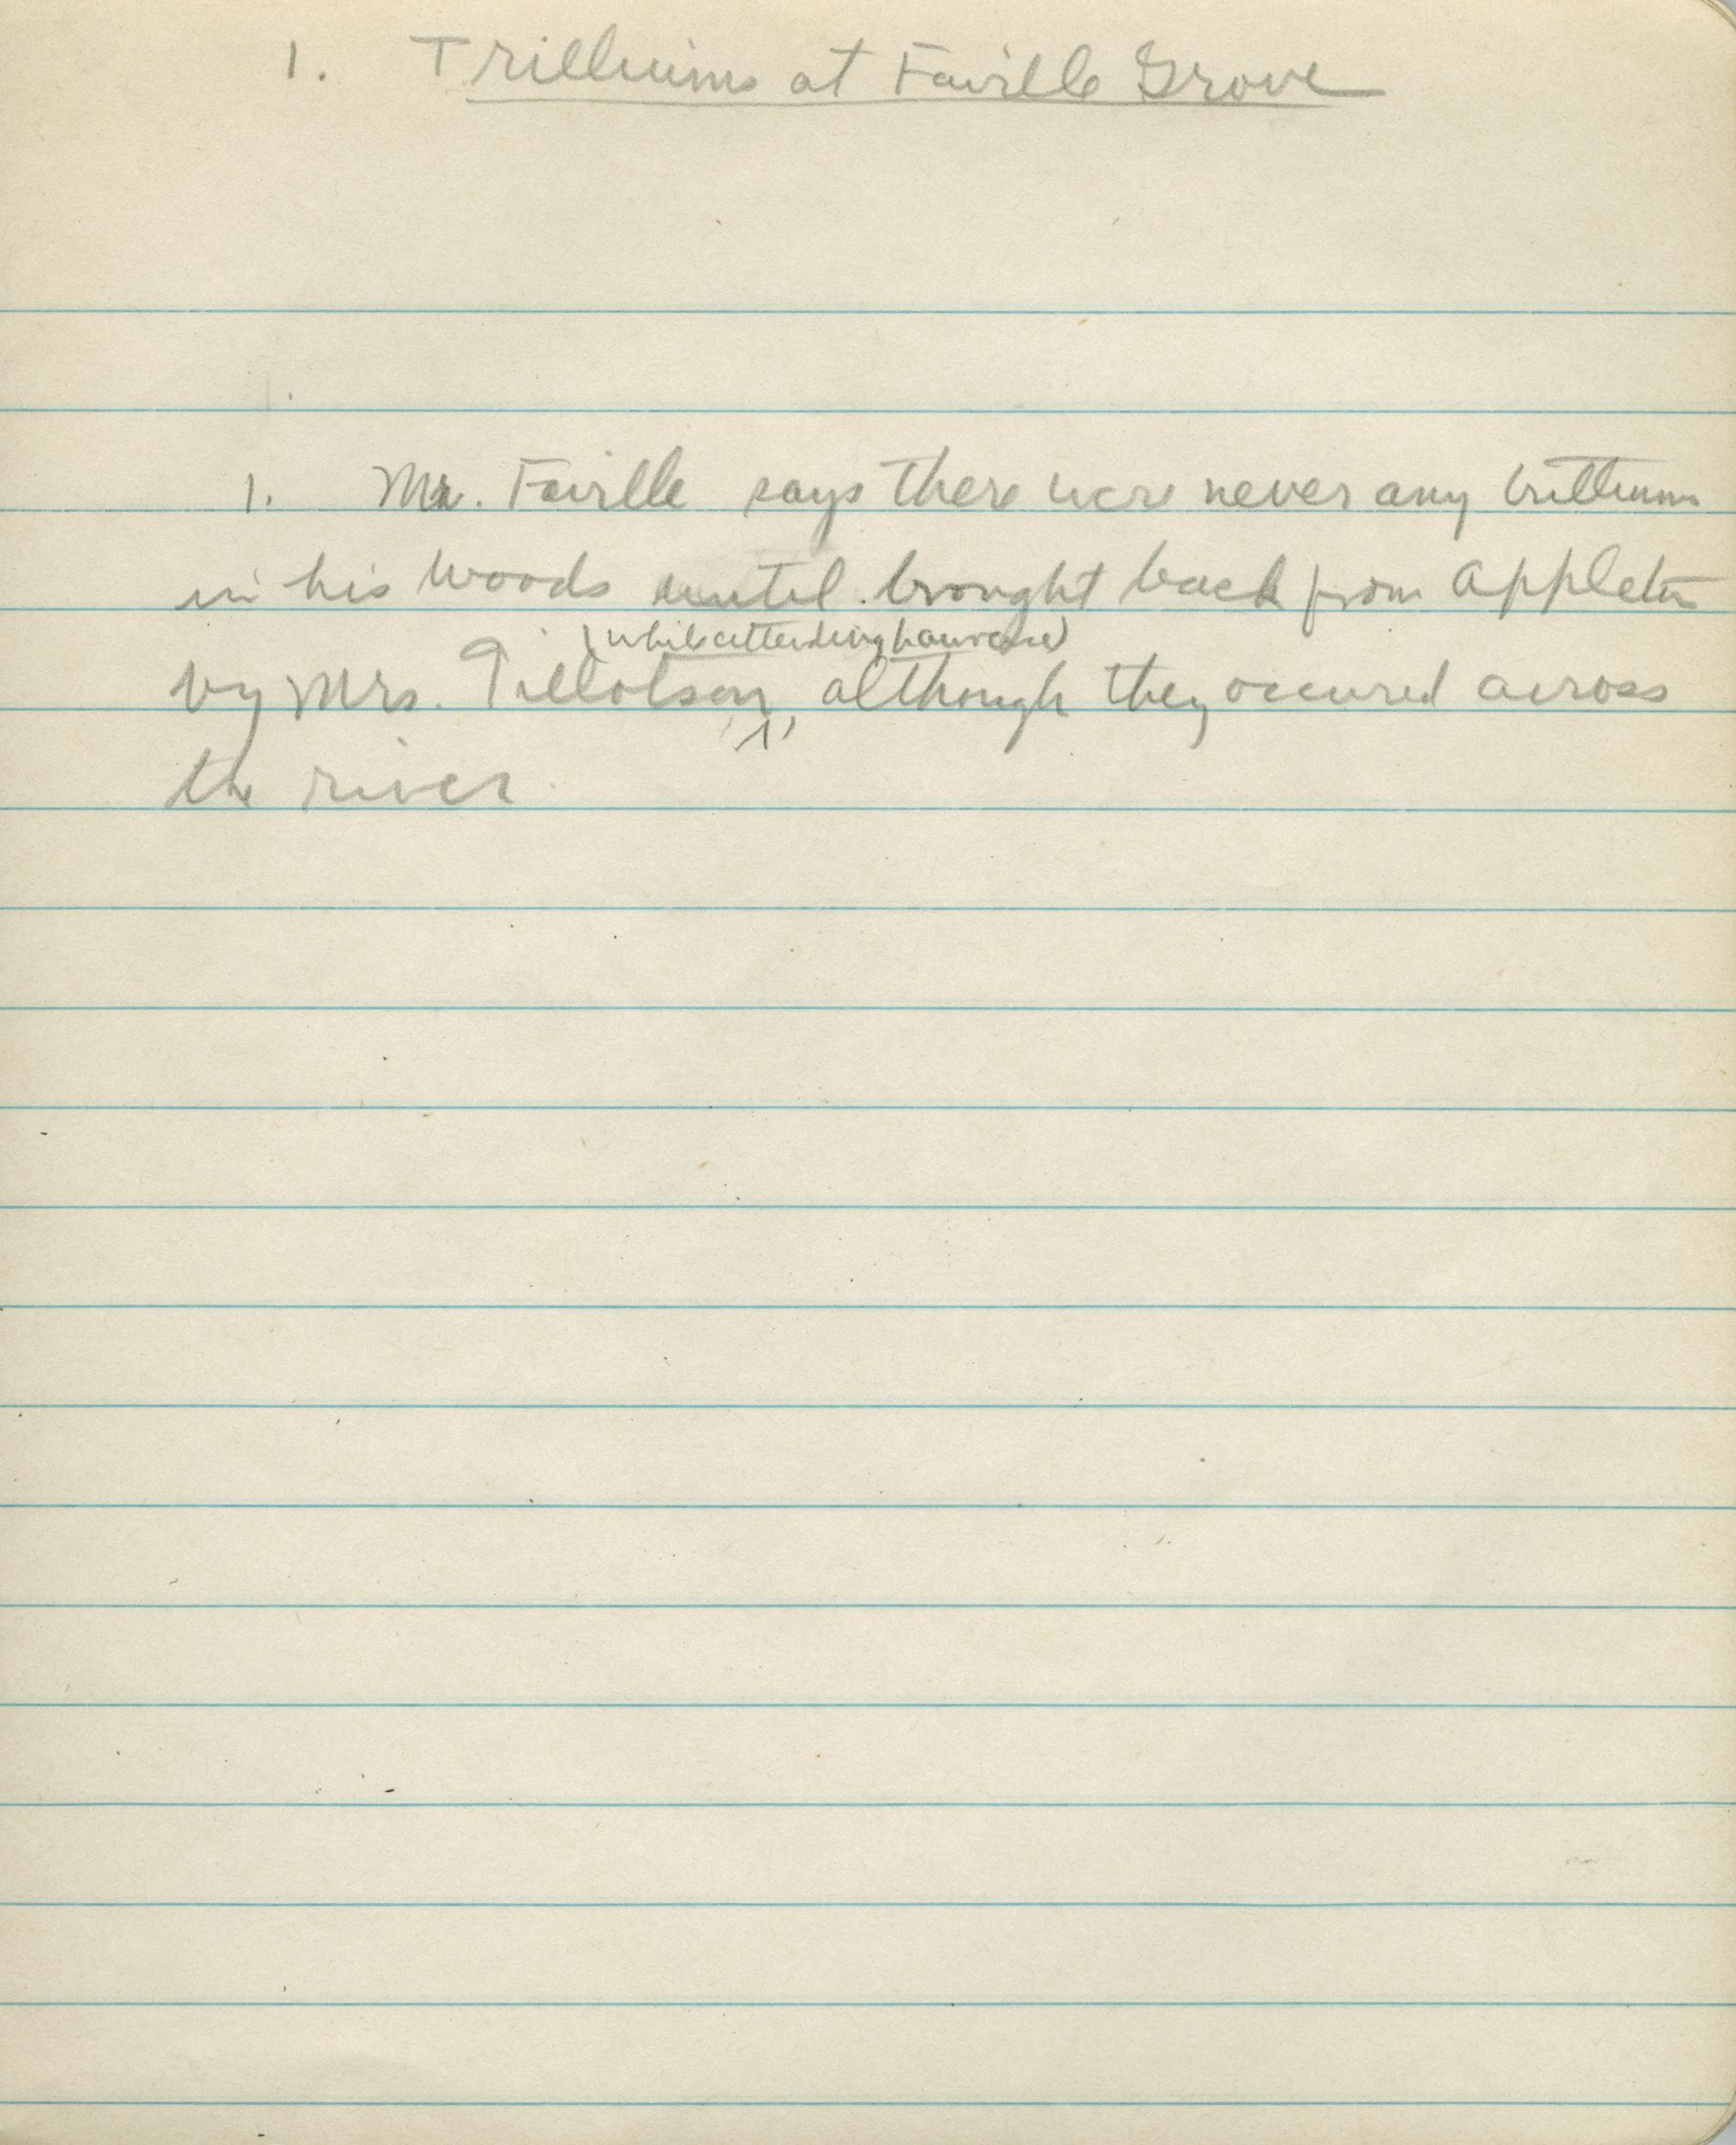 1. Trilliums at Faville Grove
1. Mr. Faville says there were never any trilliums
in his woods until brought back from Appleton
(while attending Lawrence)
by Mrs. Tillotson, although they occured across
the river.